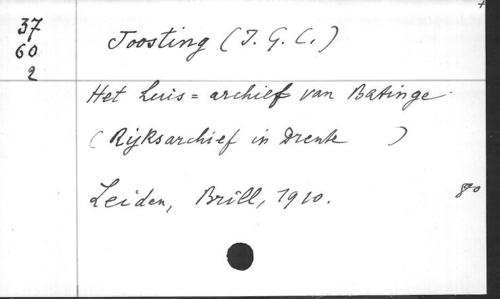 37
60
2
Joosting (J. G. C.)
Het huis=archief van Batinge.
(Rijksarchief in Drente )
Leiden, Brill, 1910.
8°